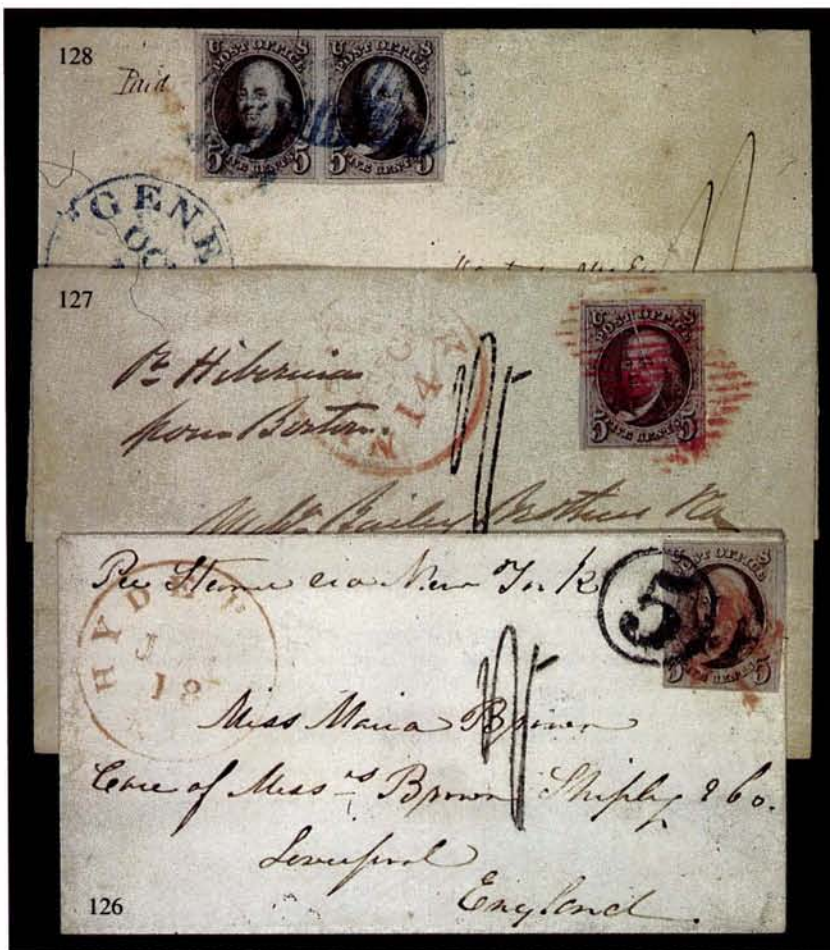 128
Paid
U S
POST OFFICE
5 FIVE CENTS 5
U S
POST OFFICE
5 FIVE CENTS 5
GENE
OC
127
Pr Hibernia
pour Boston.
N 14
U S
POST OFFICE
5 FIVE CENTS 5
Bailey Brothers
Per Steamer via New York
5
U S
POST OFFICE
5 FIVE CENTS 5
HYDE P
J
18
Miss Maria Brown
Care of Messrs Brown Shipley & Co.
Liverpool
England.
126